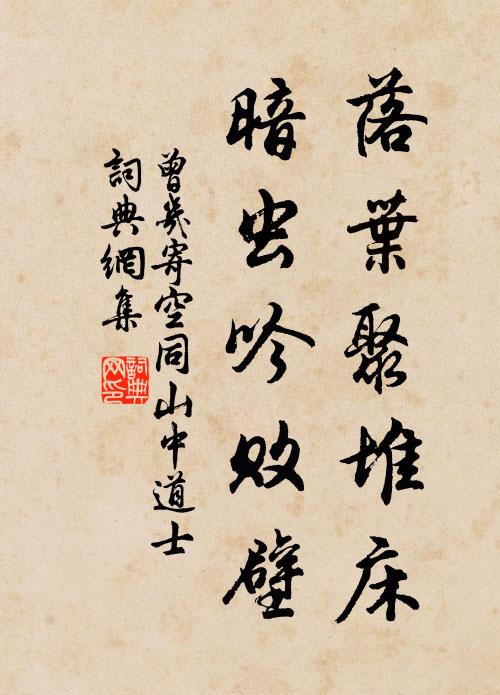 落葉聚堆床
暗虫吟败壁
曾幾寄空同山中道士
詞典網集
詞典网印